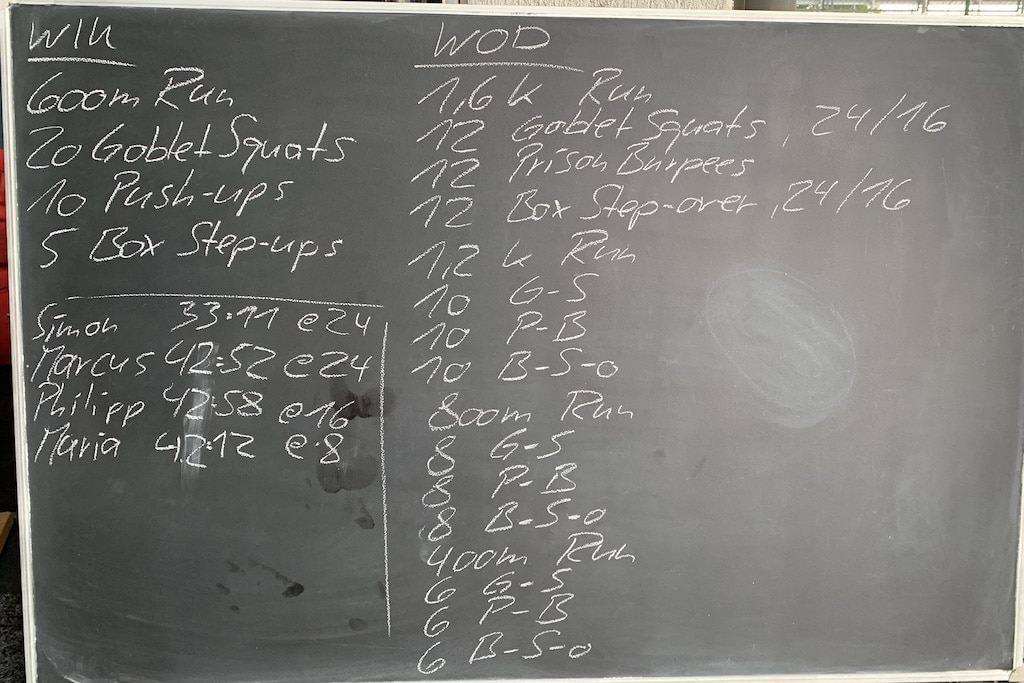 WIU
600m Run
20 Goblet Squats
10 Push-ups
5 Box Step-ups
Simon 33:11 @24
Marcus 42:52 @24
Philipp 42:58 @16
Maria 42:12 @8
WOD
1,6 k Run
12 Goblet Squats, 24/16
12 Prison Burpees
12 Box Step-over, 24/16
1,2 k Run
10 G-S
10 P-B
10 B-S-o
800m Run
8 G-S
8 P-B
8 B-S-o
400m Run
6 G-S
6 P-B
6 B-S-o